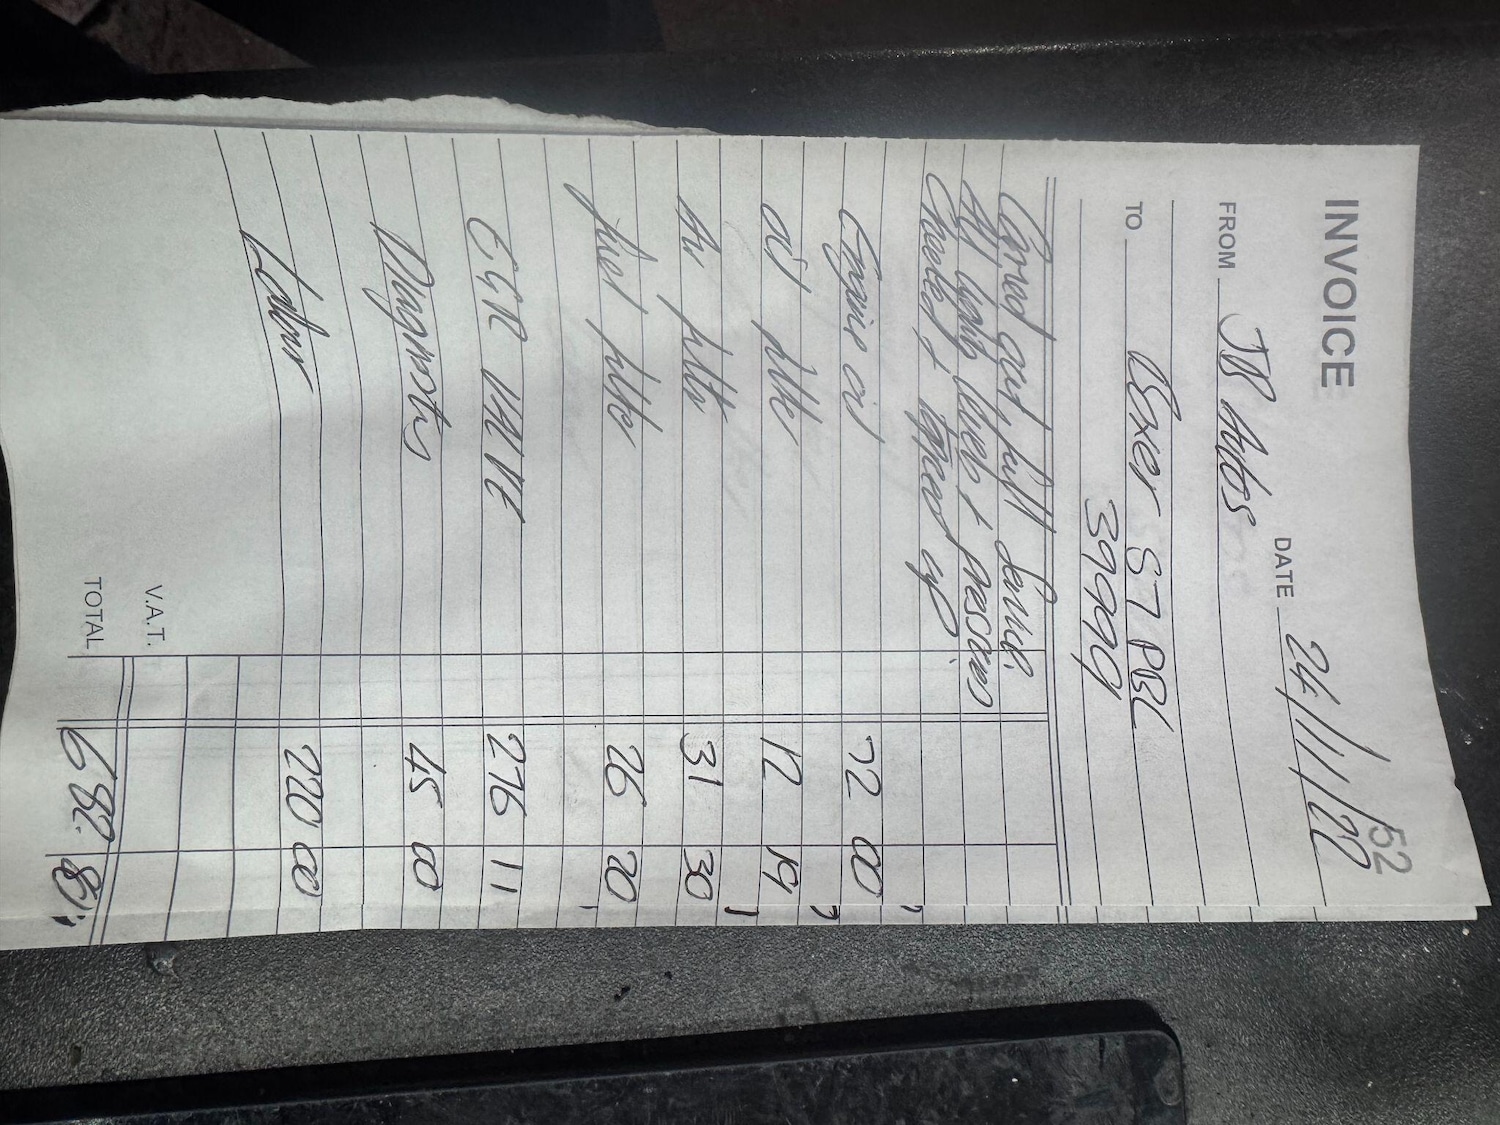 52
INVOICE
DATE 24/11/22
FROM JB Autos
TO Boxer S7 PBL
399999
Carried out full service.
All lights, levels + pressures
Checked + topped up
Engine oil 72 00
oil filter 12 19
Air filter 31 30
fuel filter 26 20
EGR VALVE 276 11
Diagnostics 45 00
Labour 220 00
V.A.T.
TOTAL 682. 8